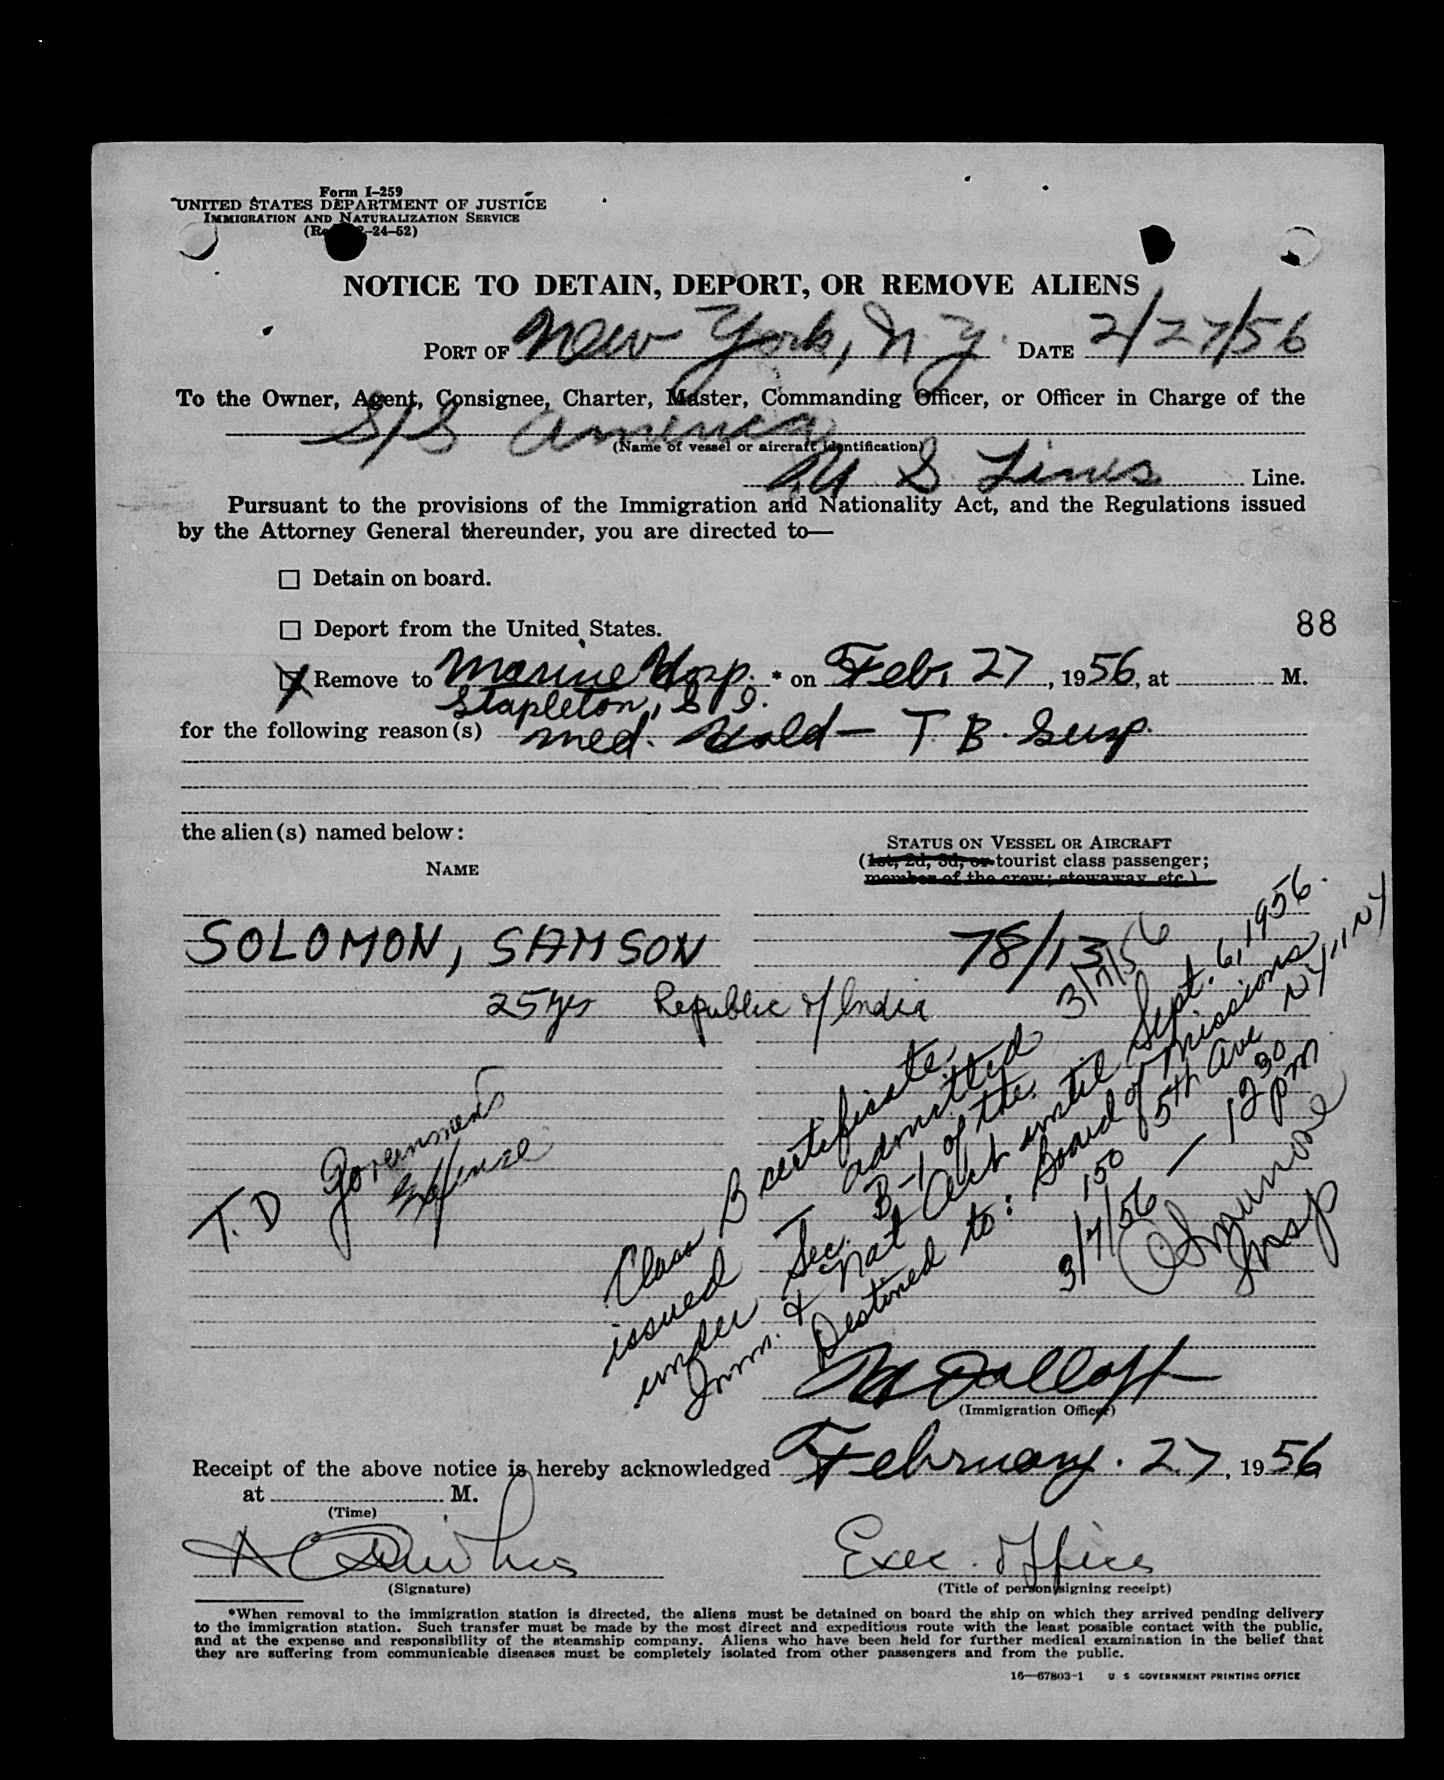 Form I-259
UNITED STATES DEPARTMENT OF JUSTICE
IMMIGRATION AND NATURALIZATION SERVICE
-24-52)
NOTICE TO DETAIN, DEPORT, OR REMOVE ALIENS
PORT OF New York, N.Y. DATE 2/27/56
To the Owner, Agent, Consignee, Charter, Master, Commanding Officer, or Officer in Charge of the
S/S America
(Name of vessel or aircraft identification)
U S Lines Line.
Pursuant to the provisions of the Immigration and Nationality Act, and the Regulations issued
by the Attorney General thereunder, you are directed to—
☐ Detain on board.
☐ Deport from the United States.
88
☒ Remove to Marine Hosp. * on Feb. 27, 1956, at M.
Stapleton, S I.
for the following reason(s) Med. Hold — T. B. Susp.
the alien(s) named below:
STATUS ON VESSEL OR AIRCRAFT
NAME
(1st, 2d, 3d, or tourist class passenger;
member of the crew; stowaway, etc.)
SOLOMON, SAMSON 78/13
25 yrs Republic of India
T. D Government
Expense
Class B certificate
issued admitted 3/7/56
under Sec. B-1 of the
Imm. & Nat Act until Sept. 6, 1956.
Destined to: Board of Missions
150 5th Ave NY, NY
3/7/56 — 12 30 pm
Insp
(Immigration Officer)
Receipt of the above notice is hereby acknowledged February. 27, 1956
at M.
(Time)
Exec. Office
(Signature) (Title of person signing receipt)
*When removal to the immigration station is directed, the aliens must be detained on board the ship on which they arrived pending delivery
to the immigration station. Such transfer must be made by the most direct and expeditious route with the least possible contact with the public,
and at the expense and responsibility of the steamship company. Aliens who have been held for further medical examination in the belief that
they are suffering from communicable diseases must be completely isolated from other passengers and from the public.
16—67803-1 U S GOVERNMENT PRINTING OFFICE